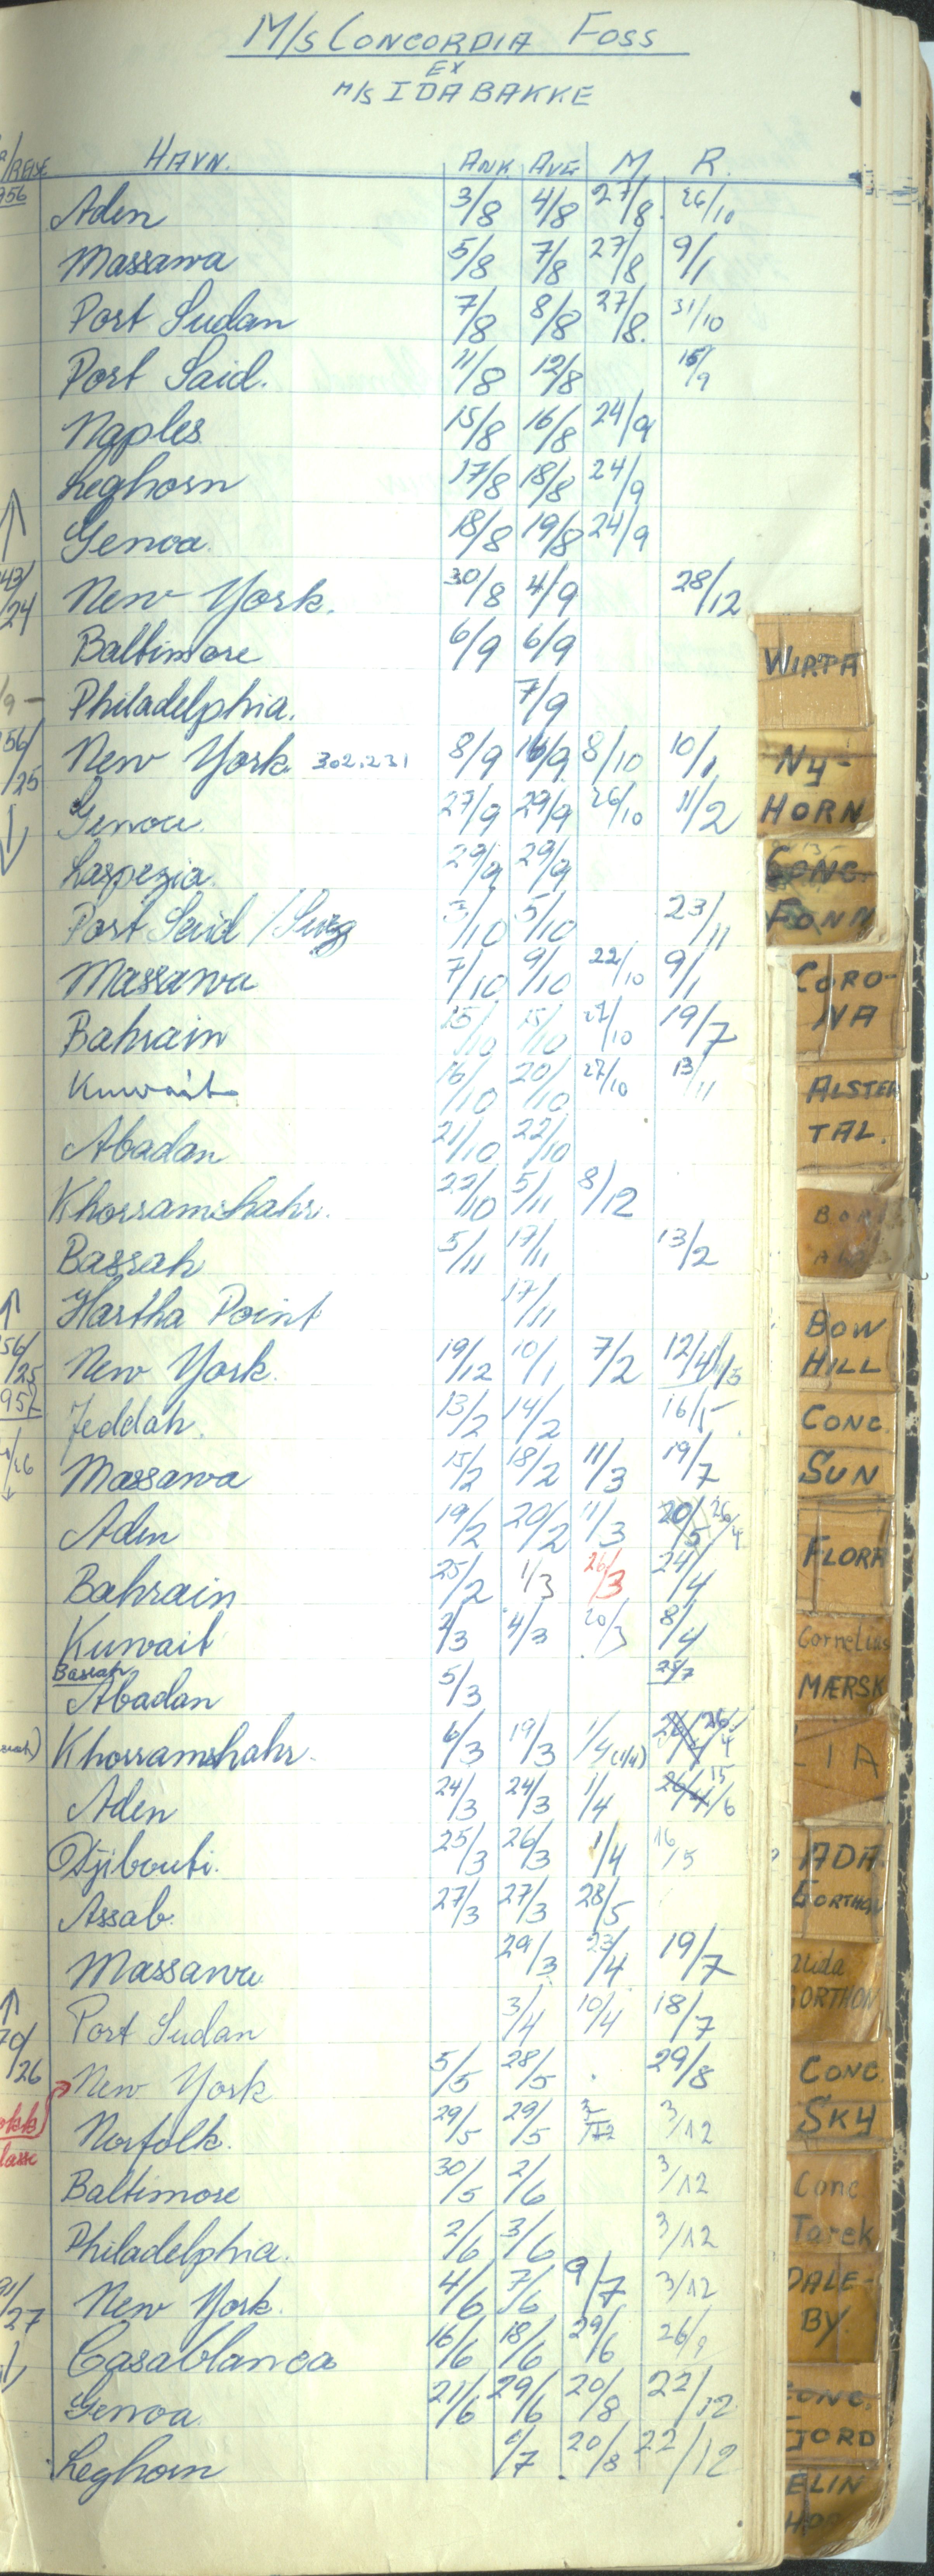 M/S CONCORDIA FOSS
EX
M/S IDA BAKKE
/REISE HAVN. ANK AVG M. R.
956 Aden 3/8 4/8 27/8. 26/10
Massawa 5/8 7/8 27/8 9/1
Port Sudan 7/8 8/8 27/8. 31/10
Port Said. 11/8 12/8 15/9
Naples 15/8 16/8 24/9
Leghorn 17/8 18/8 24/9
Genoa. 18/8 19/8 24/9
43/24 New York. 30/8 4/9 28/12
Baltimore 6/9 6/9
Philadelphia. 7/9
56/25 New York 302.231 8/9 16/9 8/10 10/1
Genoa. 27/9 29/9 26/10 11/2
Laspezia. 29/9 29/9
Port Said / Suez 3/10 5/10 23/11
Massawa 7/10 9/10 22/10 9/1
Bahrain 15/10 15/10 27/10 19/7
Kuwait 16/10 20/10 27/10 13/11
Abadan 21/10 22/10
Khorramshahr. 22/10 5/11 8/12
Basrah 5/11 17/11 13/2
Hartha Point 17/11
56/25 New York. 19/12 10/1 7/2 12/4
957 Jeddah. 13/2 14/2 16/5
/26 Massawa 15/2 18/2 11/3 19/7
Aden 19/2 20/2 11/3 20/5 26/4
Bahrain 25/2 1/3 26/3 24/4
Kuwait 2/3 4/3 20/3 8/4
Basrah
Abadan 5/3 25/7
Khorramshahr. 6/3 19/3 1/4 (1/4) 26/4
Aden 24/3 24/3 1/4 26/4 15/6
Djibouti. 25/3 26/3 1/4 16/5
Assab. 27/3 27/3 28/5
Massawa 29/3 23/4 19/7
Port Sudan 3/4 10/4 18/7
70/26 New York 5/5 28/5 29/8
Norfolk. 29/5 29/5 3/12
Baltimore 30/5 2/6 3/12
Philadelphia. 2/6 3/6 3/12
/27 New York. 4/6 7/6 9/7 3/12
Casablanca 16/6 18/6 29/6 26/9
Genoa. 21/6 29/6 20/8 22/12
Leghorn 1/7 20/8 22/12
WIRTA
NY-
HORN
CONC.
FONN
CORO-
NA
ALSTER
TAL.
BOW
HILL
CONC.
SUN
FLORA
Cornelius
MÆRSK
ADA
GORTHON
GORTHON
CONC.
SKY
Conc
Tarek
DALE-
BY.
CONC.
FJORD
ELIN